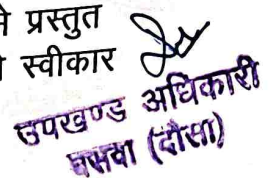 से प्रस्तुत
स्वीकार
उपखण्ड अधिकारी
बसवा (दौसा)